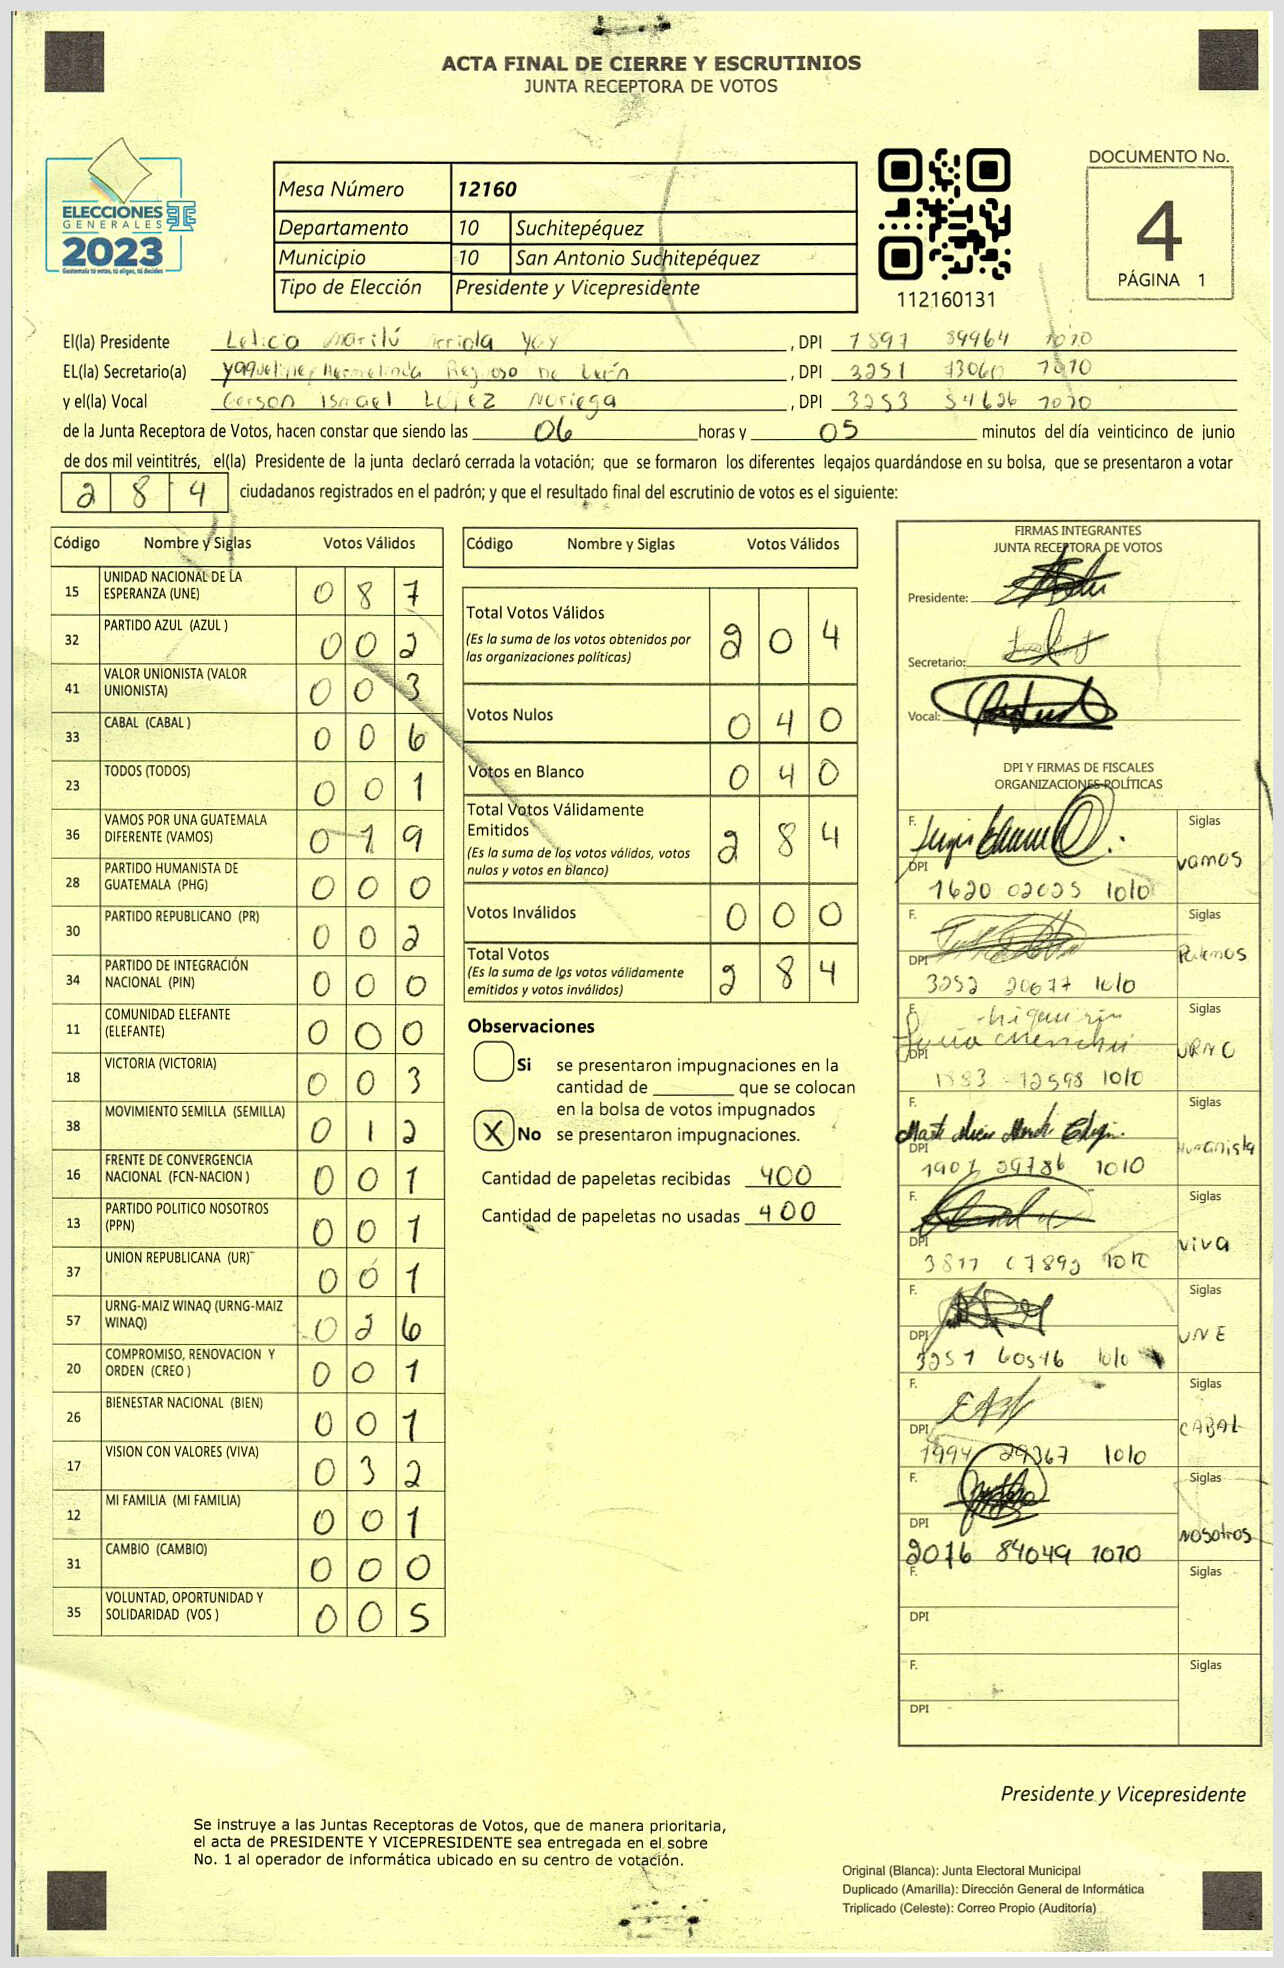 ACTA FINAL DE CIERRE Y ESCRUTINIOS
JUNTA RECEPTORA DE VOTOS
ELECCIONES
GENERALES
2023
Guatemala tú votas, tú eliges, tú decides
Mesa Número 12160
Departamento 10 Suchitepéquez
Municipio 10 San Antonio Suchitepéquez
Tipo de Elección Presidente y Vicepresidente
112160131
DOCUMENTO No.
4
PÁGINA 1
El(la) Presidente Leticia Marilú Arriola Yoy , DPI 1010
EL(la) Secretario(a) Hermelinda Reynoso De León , DPI 3251 1010
y el(la) Vocal Gerson Ismael López Noriega , DPI 3253 54626 1010
de la Junta Receptora de Votos, hacen constar que siendo las 06 horas y 05 minutos del día veinticinco de junio
de dos mil veintitrés, el(la) Presidente de la junta declaró cerrada la votación; que se formaron los diferentes legajos guardándose en su bolsa, que se presentaron a votar
2 8 4 ciudadanos registrados en el padrón; y que el resultado final del escrutinio de votos es el siguiente:
Código Nombre y Siglas Votos Válidos
15 UNIDAD NACIONAL DE LA ESPERANZA (UNE) 0 8 7
32 PARTIDO AZUL (AZUL ) 0 0 2
41 VALOR UNIONISTA (VALOR UNIONISTA) 0 0 3
33 CABAL (CABAL ) 0 0 6
23 TODOS (TODOS) 0 0 1
36 VAMOS POR UNA GUATEMALA DIFERENTE (VAMOS) 0 1 9
28 PARTIDO HUMANISTA DE GUATEMALA (PHG) 0 0 0
30 PARTIDO REPUBLICANO (PR) 0 0 2
34 PARTIDO DE INTEGRACIÓN NACIONAL (PIN) 0 0 0
11 COMUNIDAD ELEFANTE (ELEFANTE) 0 0 0
18 VICTORIA (VICTORIA) 0 0 3
38 MOVIMIENTO SEMILLA (SEMILLA) 0 1 2
16 FRENTE DE CONVERGENCIA NACIONAL (FCN-NACION ) 0 0 1
13 PARTIDO POLITICO NOSOTROS (PPN) 0 0 1
37 UNION REPUBLICANA (UR) 0 0 1
57 URNG-MAIZ WINAQ (URNG-MAIZ WINAQ) 0 2 6
20 COMPROMISO, RENOVACION Y ORDEN (CREO ) 0 0 1
26 BIENESTAR NACIONAL (BIEN) 0 0 1
17 VISION CON VALORES (VIVA) 0 3 2
12 MI FAMILIA (MI FAMILIA) 0 0 1
31 CAMBIO (CAMBIO) 0 0 0
35 VOLUNTAD, OPORTUNIDAD Y SOLIDARIDAD (VOS ) 0 0 5
Código Nombre y Siglas Votos Válidos
Total Votos Válidos 2 0 4
(Es la suma de los votos obtenidos por
las organizaciones políticas)
Votos Nulos 0 4 0
Votos en Blanco 0 4 0
Total Votos Válidamente
Emitidos 2 8 4
(Es la suma de los votos válidos, votos
nulos y votos en blanco)
Votos Inválidos 0 0 0
Total Votos 2 8 4
(Es la suma de los votos válidamente
emitidos y votos inválidos)
Observaciones
Si se presentaron impugnaciones en la
cantidad de ________ que se colocan
en la bolsa de votos impugnados
X No se presentaron impugnaciones.
Cantidad de papeletas recibidas 400
Cantidad de papeletas no usadas 400
FIRMAS INTEGRANTES
JUNTA RECEPTORA DE VOTOS
Presidente:
Secretario:
Vocal:
DPI Y FIRMAS DE FISCALES
ORGANIZACIONES POLÍTICAS
F. Siglas
vamos
DPI
1620 02025 1010
F. Siglas
DPI
3252 20677 1010
F. Siglas
DPI
12598 1010
F. Siglas
Humanista
DPI
1907 39786 1010
F. Siglas
viva
DPI
F. Siglas
UNE
DPI
3251 60546 1010
F. Siglas
CABAL
DPI
1994 29367 1010
F. Siglas
NOSOTROS
DPI
2016 84049 1010
F. Siglas
DPI
F. Siglas
DPI
Presidente y Vicepresidente
Se instruye a las Juntas Receptoras de Votos, que de manera prioritaria,
el acta de PRESIDENTE Y VICEPRESIDENTE sea entregada en el sobre
No. 1 al operador de informática ubicado en su centro de votación.
Original (Blanca): Junta Electoral Municipal
Duplicado (Amarilla): Dirección General de Informática
Triplicado (Celeste): Correo Propio (Auditoría)